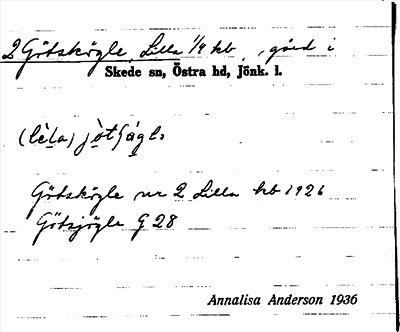 2 Götskögle, Lilla 1/4 hb, gård i
Skede sn, Östra hd, Jönk. l.
Götskögle nr 2 Lilla hb 1926
Götsjögle G 28
Annalisa Anderson 1936